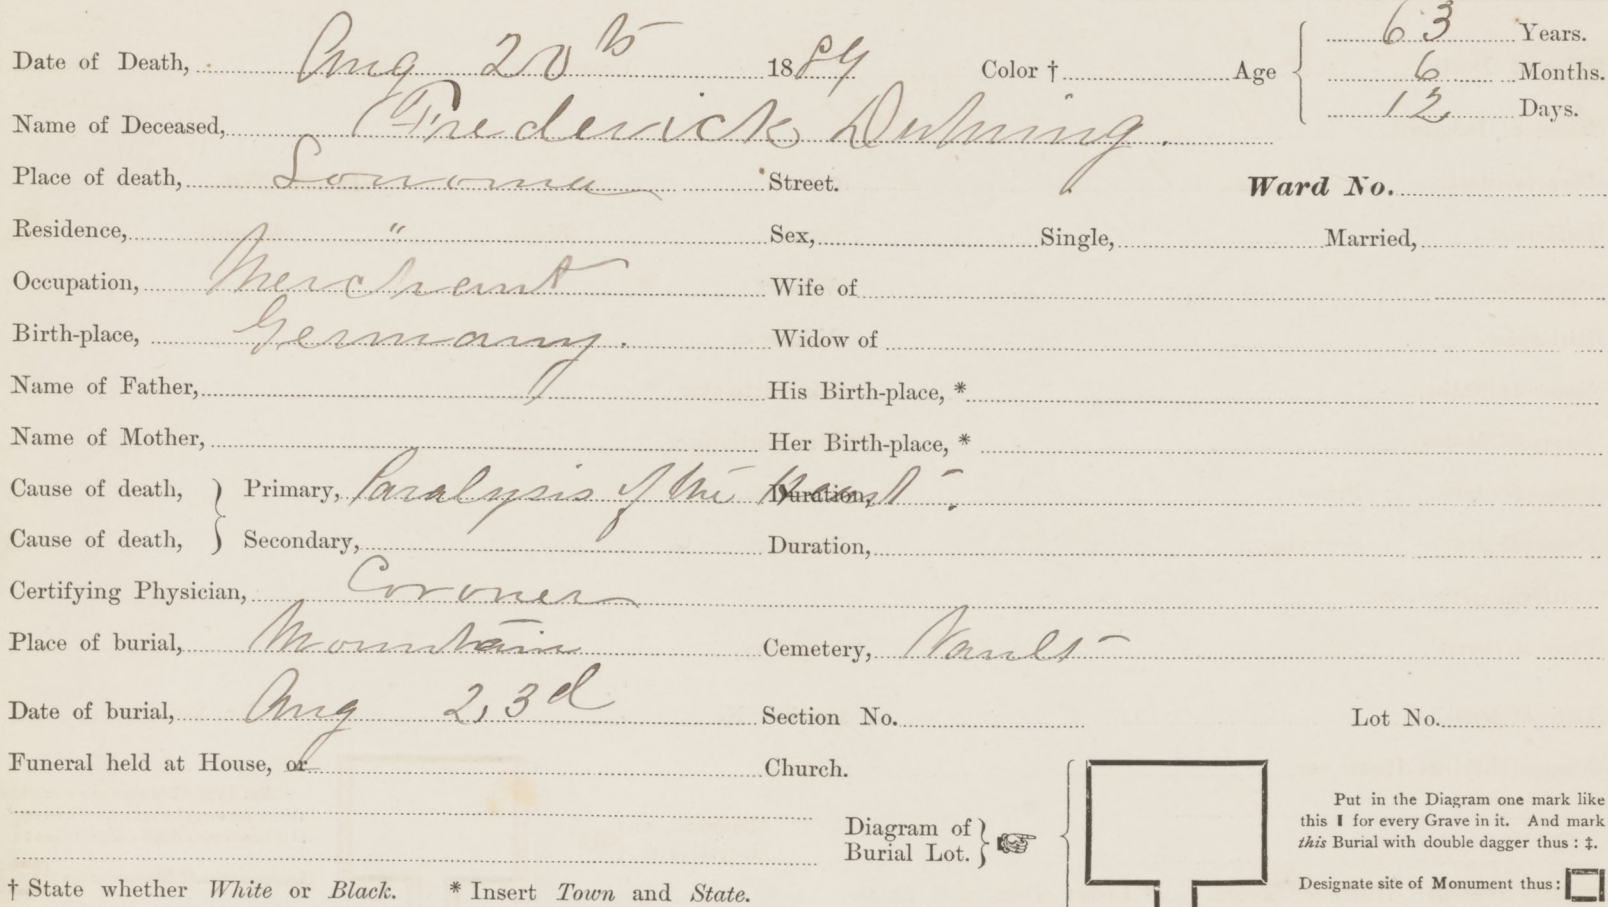 Date of Death, Aug 20th 1889 Color † Age { 63 Years.
6 Months.
12 Days.
Name of Deceased, Frederick Duhring.
Place of death, Sonoma Street. Ward No.
Residence, " Sex, Single, Married,
Occupation, Merchant Wife of
Birth-place, Germany. Widow of
Name of Father, His Birth-place, *
Name of Mother, Her Birth-place, *
Cause of death, } Primary, Paralysis of the Heart. Duration,
Cause of death, } Secondary, Duration,
Certifying Physician, Coroner
Place of burial, Mountain Cemetery, Vault
Date of burial, Aug 23d Section No. Lot No.
Funeral held at House, or Church.
Diagram of
Burial Lot. }
Put in the Diagram one mark like
this I for every Grave in it. And mark
this Burial with double dagger thus : ‡.
Designate site of Monument thus :
† State whether White or Black. * Insert Town and State.